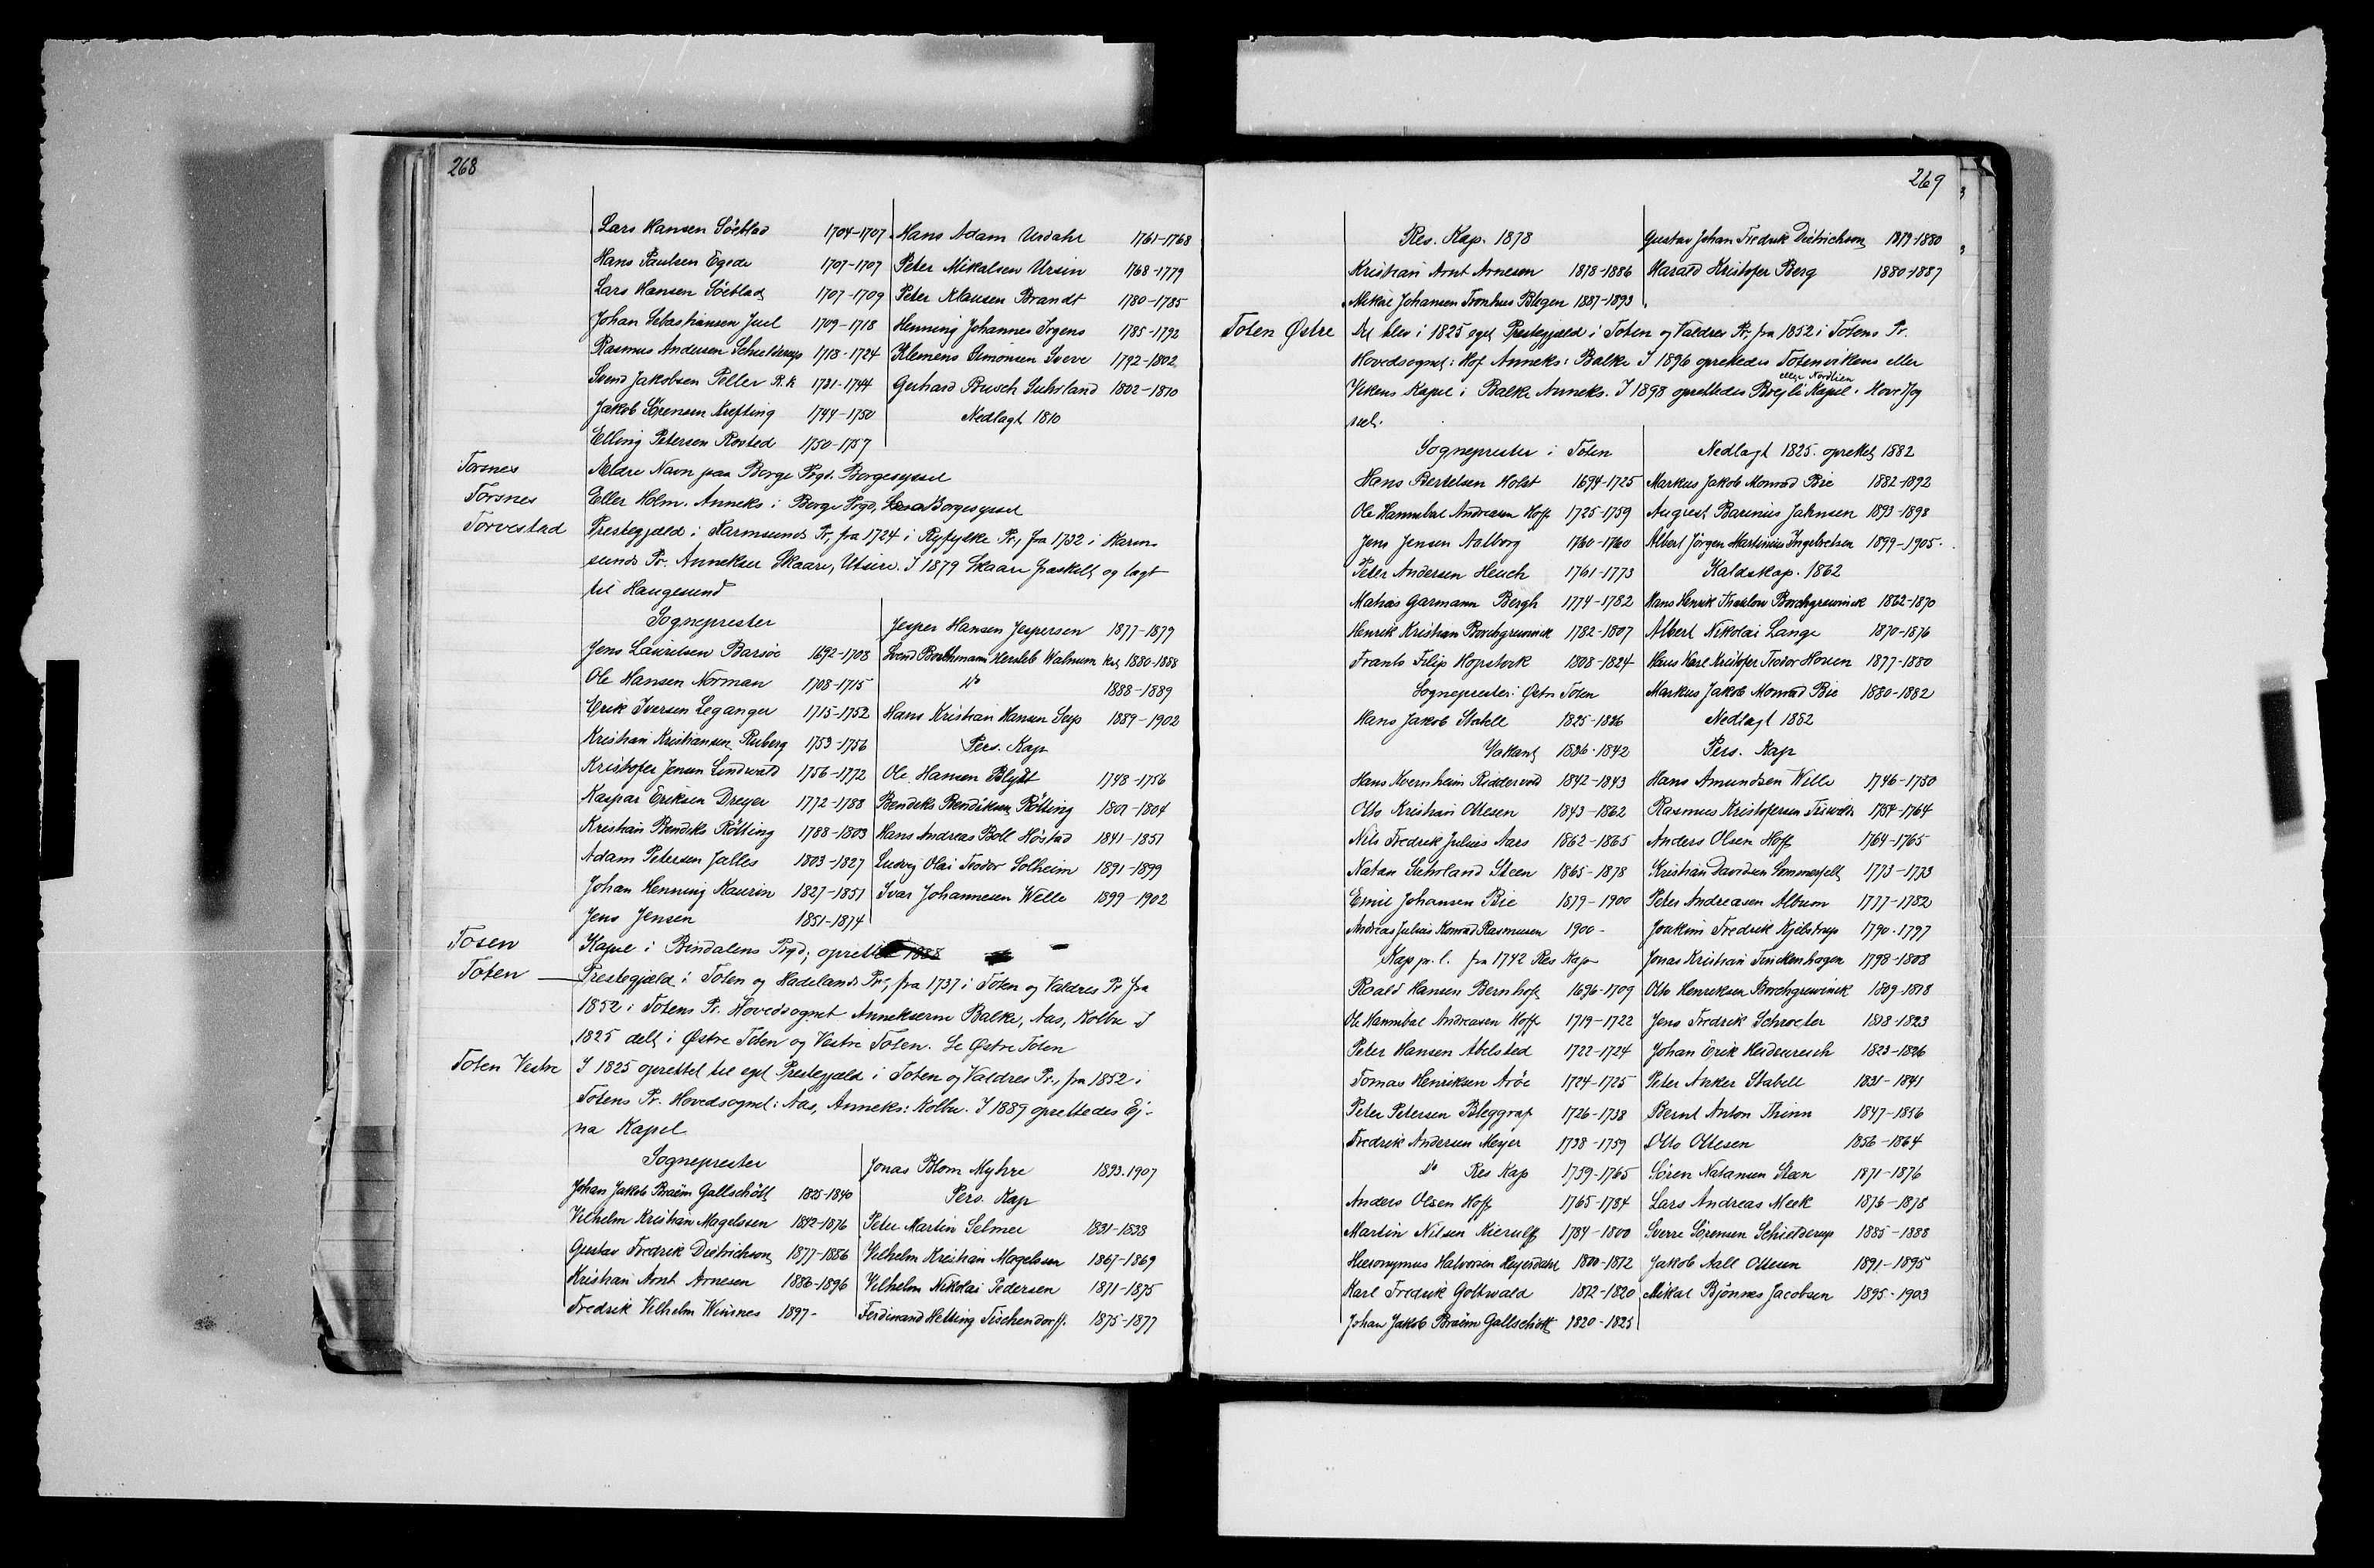 268
Lars Hansen Söeblad 1704-1707
Hans Paulsen Egede 1707-1707
Lars Hansen Söeblad 1707-1709
Johan Sebastiansen Juel 1709-1718
Rasmus Andersen Schielderup 1718-1724
Svend Jakobsen Peller R.K 1731-1744
Jakob Sørensen Krefting 1744-1750
Elling Petersen Rosted 1750-1757
Hans Adam Urdahl 1761-1768
Peter Mikalsen Ursin 1768-1779
Peter Klausen Brandt 1780-1785
Henning Johannes Irgens 1785-1792
Klemens Simonsen Svere 1792-1802
Gerhard Busch Suhrland 1802-1810
Nedlagt 1810
Torsnes Ældre Navn paa Borge Prgd. Borgesyssel
Torsnes Eller Holm. Anneks i Borge Prgd, Borgesyssel
Torvestad Prestegjæld i Karmsunds Pr, fra 1724 i Ryfylke Pr, fra 1732 i Karm-
sunds Pr. Annekser Skaare, Utsire. I 1879 Skaare fraskilt og lagt
til Haugesund
Sogneprester
Jens Lauritsen Barsöe 1692-1708
Ole Hansen Norman 1708-1715
Erik Iversen Leganger 1715-1752
Kristian Kristiansen Ruberg 1753-1756
Kristofer Jensen Lindwald 1756-1772
Kaspar Eriksen Dreyer 1772-1788
Kristian Bendiks Rötting 1788-1803
Adam Petersen Jalles 1803-1827
Johan Henning Kaurin 1827-1851
Jens Jensen 1851-1874
Jesper Hansen Jespersen 1877-1879
Svend Borchmann Hersleb Walnum Kst 1880-1888
Do 1888-1889
Hans Kristian Hansen Seip 1889-1902
Pers. Kap
Ole Hansen Blydt 1748-1756
Bendeks Bendiksen Rötting 1801-1804
Hans Andreas Boll Höstad 1841-1851
Ludvig Olai Teodor Solheim 1891-1899
Ivar Johannesen Welle 1899-1902
Tosen Kapel i Bindalens Prgd; oprettet
Toten Prestegjæld i Toten og Hadelands Pr, fra 1737 i Toten og Valdres Pr fra
1852 i Totens Pr. Hovedsognet Annekserne Balke, Aas, Kolbu I
1825 delt i Østre Toten og Vestre Toten. Se Østre Toten
Toten Vestre I 1825 oprettet til eget Prestegjæld i Toten og Valdres Pr, fra 1852 i
Totens Pr. Hovedsognet: Aas, Anneks: Kolbu. I 1889 oprettedes Ej-
na Kapel
Sogneprester
Johan Jakob Braëm Gallschött 1825-1840
Vilhelm Kristian Magelssen 1842-1876
Gustav Fredrik Dietrichson 1877-1886
Kristian Arnt Arnesen 1886-1896
Fredrik Vilhelm Wiisnes 1897-
Jonas Blom Myhre 1893.1907
Pers. Kap
Peter Martin Selmer 1831-1838
Vilhelm Kristian Magelssen 1867-1869
Vilhelm Nikolai Pedersen 1871-1875
Ferdinand Hetting Tischendorff. 1875-1877
269
Res. Kap. 1878
Kristian Arnt Arnesen 1878-1886
Mikal Johansen Tronhus Blegen 1887-1893
Gustav Johan Fredrik Dietrichson 1879-1880
Harald Kristofer Berg 1880-1887
Toten Østre Det blev i 1825 eget Prestegjæld i Toten og Valdres Pr, fra 1852 i Totens Pr.
Hovedsognet: Hof Anneks: Balke I 1896 oprettedes Totenvikens eller
eller Nordlien
Vikens Kapel i Balke Anneks. I 1898 oprettedes Kapel i Hovedsog
net.
Sogneprester i Toten
Hans Bertelsen Holst 1694-1725
Ole Hannibal Andreasen Hoff 1725-1759
Jens Jensen Aalborg 1760-1760
Peter Andersen Heuch 1761-1773
Matias Garmann Bergh 1774-1782
Henrik Kristian Borchgrevinck 1782-1807
Frants Filip Hopstock 1808-1824
Sogneprester i Østre Toten
Hans Jakob Stabell 1825-1836
Vakant 1836-1842
Hans Kvernheim Riddervold 1842-1843
Otto Kristian Ottesen 1843-1862
Nils Fredrik Julius Aars 1862-1865
Natan Suhrland Steen 1865-1878
Emil Johansen Bie 1879-1900
Andreas Julius Konrad Rasmussen 1900-
Kap p. l. fra 1742 Res Kap
Roald Hansen Bernhoft 1696-1709
Ole Hannibal Andreasen Hoff 1719-1722
Peter Hansen Abelsted 1722-1724
Tomas Henriksen Aröe 1724-1725
Peter Petersen Bleggrap 1726-1738
Fredrik Andersen Meyer 1738-1759
Do Res Kap 1759-1765
Anders Olsen Hoff 1765-1784
Martin Nilsen Kierulff 1784-1800
Hieronymus Halvorsen Heyerdahl 1800-1812
Karl Fredrik Gottwald 1812-1820
Johan Jakob Braëm Gallschött 1820-1825
Nedlagt 1825. oprettet 1882
Markus Jakob Monrad Bie 1882-1892
August Barinius Jahnsen 1893-1898
Albert Jörgen Martinius Ingebretsen 1899-1905.
Kaldskap. 1862
Hans Henrik Thaulow Borchgrevinck 1862-1870
Albert Nikolai Lange 1870-1876
Hans Karl Kristofer Teodor Horsen 1877-1880
Markus Jakob Monrad Bie 1880-1882
Nedlagt 1882
Pers. Kap
Hans Amundsen Wille 1746-1750
Rasmus Kristofersen 1754-1764
Anders Olsen Hoff 1764-1765
Kristian Davidsen Sommerfelt 1773-1773
Peter Andreasen Album 1777-1782
Joakim Fredrik Kjelstrup 1790-1797
Jonas Kristian Finckenhagen 1798-1808
Otto Henriksen Borchgrevinck 1809-1818
Jens Fredrik Schroeter 1818-1823
Johan Erik Heidenreich 1823-1826
Peter Anker Stabell 1831-1841
Bernt Anton Thinn 1847-1856
Otto Ottesen 1856-1864
Sören Natansen Steen 1871-1876
Lars Andreas Meek 1876-1878
Sverre Sörensen Schielderup 1885-1888
Jakob Aall Ottesen 1891-1895
Mikal Bjönnes Jacobsen 1895-1903